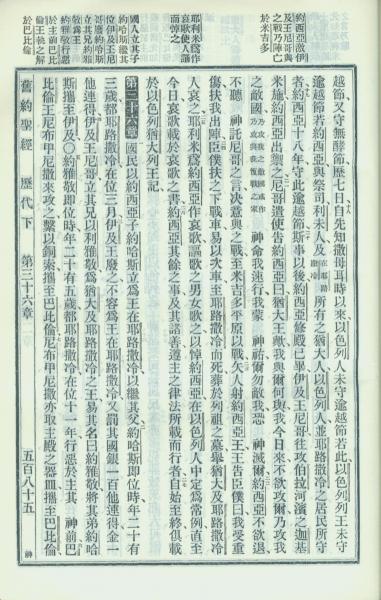 約西亞敵伊
及王尼哥與
之戰乃陣亡
於米吉多
耶利米爲作
哀歌使人謳
而悼之
國人立其子
約哈斯繼其
位伊及王尼
哥廢約哈斯
立其兄約雅
敬爲王
約雅敬行惡
於主前巴比
倫王執之解
於巴比倫
越節又守無酵節歷七日自先知撒母耳時以來以色列人未守逾越節若此以色列列王未守
逾越節若約西亞與祭司利未人及耶路撒冷所有之猶大人以色列人並耶路撒冷之居民所守
者約西亞十八年守此逾越節斯事以後約西亞修殿已畢伊及王尼哥往攻伯拉河濱之迦基
米施約西亞出禦之尼哥遣使告約西亞曰猶大王歟我與爾何與我今日來不欲攻爾乃攻我
之敵國乃攻我之敵國或作乃攻與我恆戰之家神命我速行我蒙神祐爾勿敵我恐神滅爾約西亞不欲退
不聽神託尼哥之言決意與之戰至米吉多平原以戰矢人射約西亞王王告臣僕曰我受重
傷扶我出陣臣僕扶之下戰車易以次車至耶路撒冷而死葬於列祖之墓舉猶大及耶路撒冷
人哀之耶利米爲約西亞作哀歌謳歌之男女歌之以悼約西亞在以色列人中定爲常例直至
今日哀歌載於哀歌之書約西亞其餘之事及其諸善遵主之律法所載而行者自始至終俱載
於以色列猶大列王記
第三十六章國民以約西亞子約哈斯立爲王在耶路撒冷以繼其父約哈斯卽位時年二十有
三歲都耶路撒冷在位三月伊及王廢之不容爲王在耶路撒冷又罰其國銀一百他連得金一
他連得伊及王尼哥立其兄以利雅敬爲猶大及耶路撒冷之王易其名曰約雅敬將其弟約哈
斯攜至伊及○約雅敬卽位時年二十有五歲都耶路撒冷在位十一年行惡於主其神前巴
比倫王尼布甲尼撒來攻之繫以銅索攜至巴比倫尼布甲尼撒亦取主殿之器皿攜至巴比倫
舊約聖經 歷代下 第三十六章 五百八十五 神